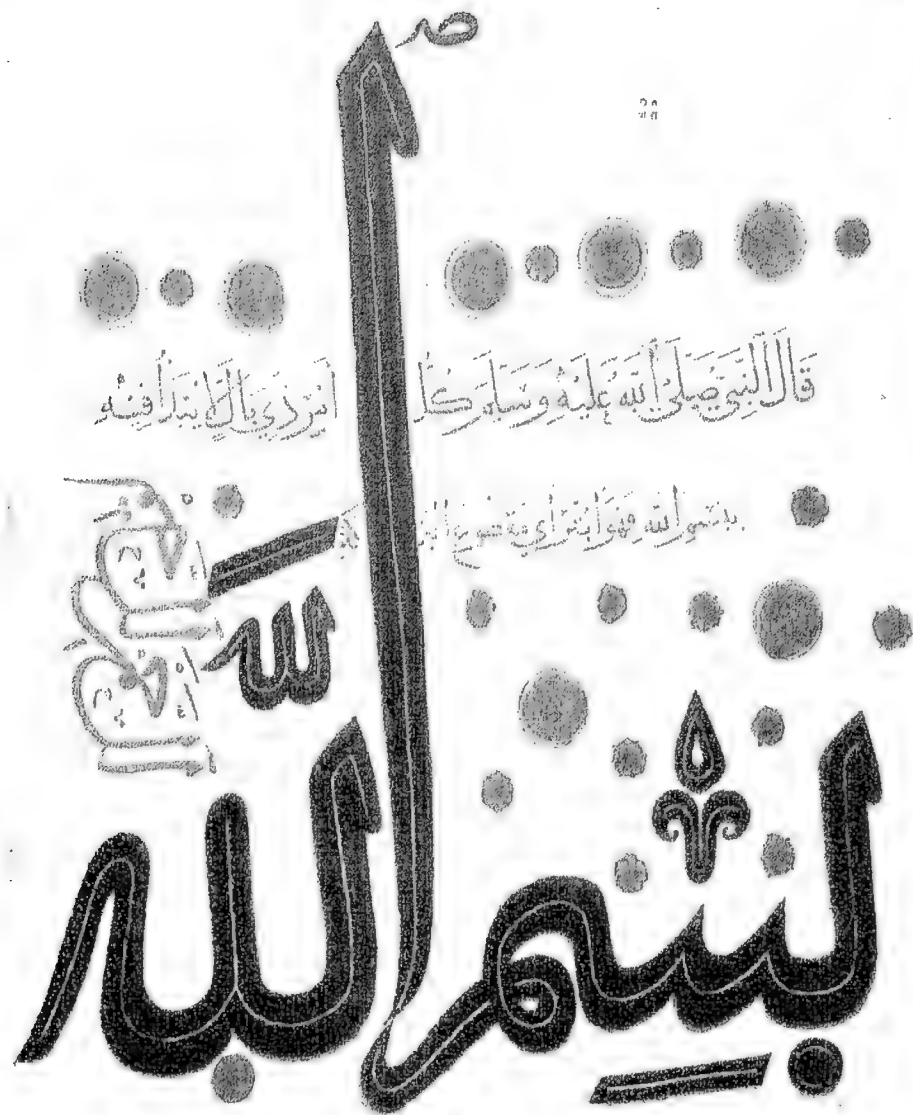 قَالَ النَّبِيُّ صَلَّى اللَّهُ عَلَيْهِ وَسَلَّمَ كُلُّ أَمْرٍ ذِي بَالٍ لَا يُبْدَأُ فِيهِ
بِسْمِ اللَّهِ فَهُوَ أَبْتَرُ أَيْ مَقْطُوعُ
بِسْمِ اللَّهِ